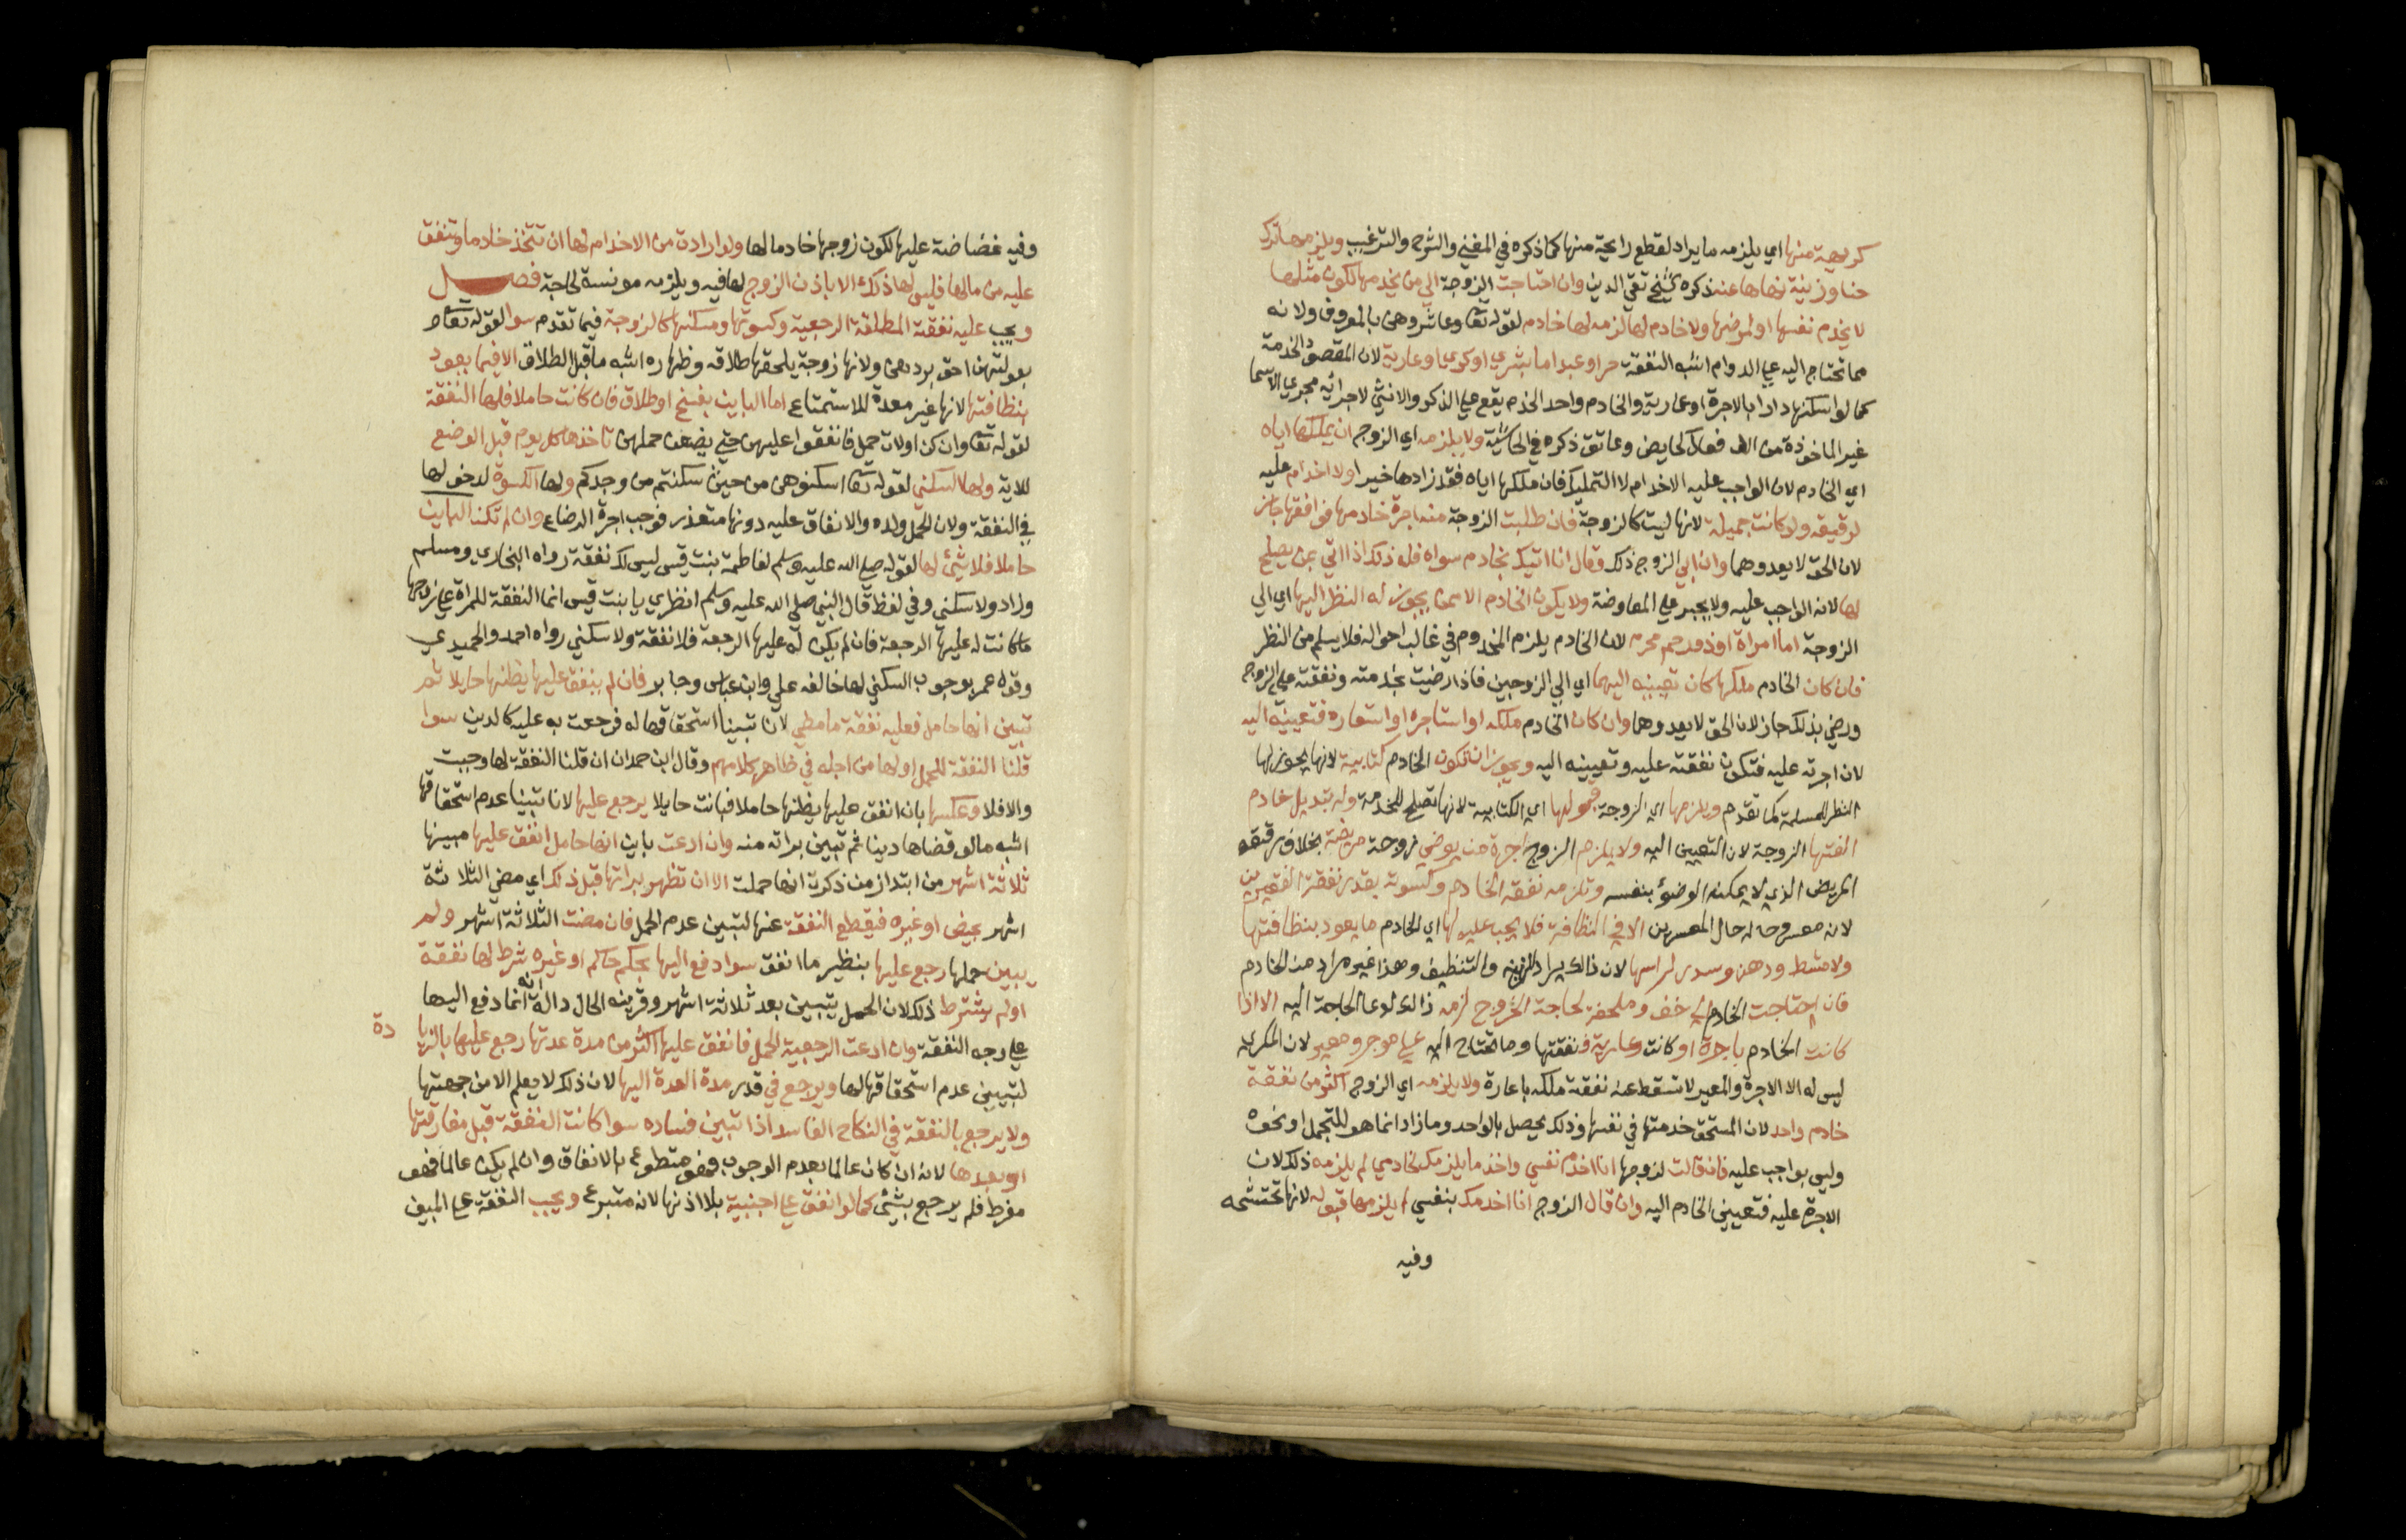 كريهة منها اي يلزمه ما يراد لقطع رايحة منها كما ذكره في المغني والشرح والترغيب ويلزمها ترك
حنا وزينة نهاها عنه ذكره الشيخ تقي الدين وان احتاجت الزوجة الي من يخدمها لكون مثلها
لا يخدم نفسها او لمرضها ولا خادم لها لزمه لها خادم لقوله تعا وعاشروهن بالمعروف ولانه
مما تحتاج اليه علي الدوام اشبه النفقة حرا وعبدا ما بشري او كري او عارية لان المقصود الخدمة
كما لو اسكنها دارا بالاجرة او عارية والخادم واحد الخدم يقع علي الذكر والانثي لاجرائه مجري الاسما
غير الماخوذة من الف فعال كحايض وعاتق ذكره في الحاشية ولا يلزمه اي الزوج ان يملكها اياه
اي الخادم لان الواجب عليه الاخدام لا التمليك فان ملكها اياه فقد زادها خيرا ولا اخدام عليه
لرقيقه ولو كانت جميلة لانها ليست كالزوجة فان طلبت الزوجة منه اجرة خادمها فوافقها جاز
لان الحق لا يعدوهما وان ابي الزوج ذلك وقال انا اتيك بخادم سواه فله ذلك اذا اتي بمن يصلح
لها لانه الواجب عليه ولا يجبر علي المعاوضة ولا يكون الخادم الا ممن يجوز له النظر اليها اي الي
الزوجة اما امراة او ذو رحم محرم لان الخادم يلزم المخدوم في غالب احواله فلا يسلم من النظر
فان كان الخادم ملكها كان تعيينه اليهما اي الي الزوجين فاذا رضيت بخدمته ونفقته علي الزوج
ورضي بذلك جاز لان الحق لا يعدوهما وان كان الخادم ملكه او استاجره او استعاره فتعيينه اليه
لان اجرته عليه فتكون نفقته عليه وتعيينه اليه ويجوز ان تكون الخادم كتابية لانها يجوز لها
النظر للمسلمة كما تقدم ويلزمها اي الزوجة قبولها اي الكتابية لانها تصلح للخدمة وله تبديل خادم
الفتها الزوجة لان التعيين اليه ولا يلزم الزوج اجرة من يوضي زوجة مريضة بخلاف رقيقه
المريض الذي لا يمكنه الوضوء بنفسه وتلزمه نفقة الخادم وكسوته بقدر نفقة الفقيرين
لانه معسر وحاله حال المعسرين الا في النظافة فلا يجب عليه لها اي الخادم ما يعود بنظافتها
ولا مشط ودهن وسدر لراسها لان ذالك يراد للزينه والتنظيف وهذا غير مراد من الخادم
فان احتاجت الخادم الي خف وملحفة لحاجة الخروج لزمه ذالك لدعا الحاجة اليه الا اذا
كانت الخادم باجرة او كانت وعارية فنفقتها وما تحتاج اليه علي موجر ومعير لان المكري
ليس له الا الاجرة والمعير لا تسقط عنه نفقة ملكه باعارة ولا يلزمه اي الزوج اكثر من نفقة
خادم واحد لان المستحق خدمتها في نفسها وذلك يحصل بالواحد وما زاد انما هو للتجمل او نحوه
وليس بواجب عليه فان قالت لزوجها انا اخدم نفسي واخذ ما يلزمك لخادمي لم يلزمه ذلك لان
الاجرة عليه فتعيين الخادم اليه وان قال الزوج انا اخدمك بنفسي لم يلزمها قبوله لانها تحتشمه
وفيه
وفيه غضاضة عليها لكون زوجها خادما لها ولو ارادت من الاخدام لها ان تتخذ خادما وتنفق
عليه من مالها فليس لها ذلك الا باذن الزوج لها فيه ويلزمه مونسة لحاجة فصل
ويجب عليه نفقة المطلقة الرجعية وكسوتها ومسكنها كالزوجة فيما تقدم سوا لقوله تعالى
بعولتهن احق بردهن ولانها زوجة يلحقها طلاقه وظهاره اشبه ما قبل الطلاق الا فيما يعود
بنظافتها لانها غير معدة للاستمتاع اما الباين بفسخ او طلاق فان كانت حاملا فلها النفقة
لقوله تعا وان كن اولات حمل فانفقوا عليهن حتي يضعن حملهن تاخذها كل يوم قبل الوضع
للاية ولها السكني لقوله تعا اسكنوهن من حيث سكنتم من وجدكم ولها الكسوة لدخولها
في النفقة ولان الحمل ولده والانفاق عليه دونها متعذر فوجب اجرة الرضاع وان لم تكن الباين
حاملا فلا شيء لها لقوله صلي الله عليه وسلم لفاطمة بنت قيس ليس لك نفقة رواه البخاري ومسلم
وزاد ولا سكني وفي لفظ قال النبي صلي الله عليه وسلم انظري يا بنت قيس انما النفقة للمراة علي زوجها
ما كانت له عليها الرجعة فان لم يكن له عليها الرجعة فلا نفقة ولا سكني رواه احمد والحميدي
وقول عمر بوجوب السكني لها خالفه علي وابن عباس وجابر فان لم ينفق عليها يظنها حايلا ثم
تبين انها حامل فعليه نفقة ما مضي لانا تبينا استحقاقها له فرجعت به عليه كالدين سوا
قلنا النفقة للحمل او لها من اجله في ظاهر كلامهم وقال ابن حمدان ان قلنا النفقة لها وجبت
والا فلا وعكسها بان انفق عليها يظنها حاملا فبانت حايلا يرجع عليها لانا تبينا عدم استحقاقها
اشبه ما لو قضاها دينا ثم تبين براته منه وان ادعت باين انها حامل انفق عليها مبينها
ثلاثة اشهر من ابتدا زمن ذكرت انها حملت الا ان تظهر براتها قبل ذلك اي مضي الثلاثة
اشهر بحيض او غيره فيقطع النفقة عنها لتبين عدم الحمل فان مضت الثلاثة اشهر ولم
يبين حملها رجع عليها بنظير ما انفق سوا دفع اليها بحكم حاكم او غيره شرط لها نفقة
او لم يشترط ذلك لان الحمل يتبين بعد ثلاثة اشهر وقرينه الحال دالة انه انما دفع اليها
علي وجه النفقة وان ادعت الرجعية الحمل فانفق عليها اكثر من مدة عدتها رجع عليها بالزيا دة
لتبيين عدم استحقاقها لها ويرجع في قدر مدة العدة اليها لان ذلك لا يعلم الا من جهتها
ولا يرجع بالنفقة في النكاح الفاسد اذا تبين فساده سوا كانت النفقة قبل مفارقتها
او بعدها لانه ان كان عالما بعدم الوجوب فهو متطوع بالانفاق وان لم يكن عالما فهو
مفرط فلم يرجع بشيء كما لو انفق علي اجنبية بلا اذنها لانه متبرع ويجب النفقة علي المبين